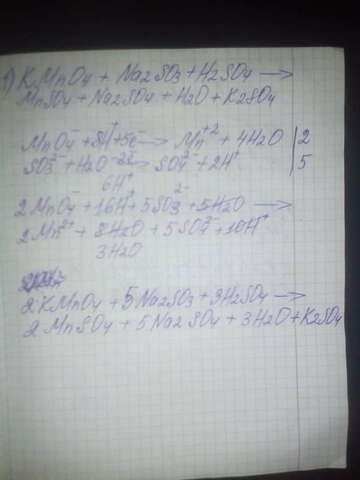 1) KMnO4 + Na2SO3 + H2SO4 →
MnSO4 + Na2SO4 + H2O + K2SO4
MnO4⁻ + 8H⁺ + 5e⁻ → Mn⁺² + 4H2O | 2
SO3²⁻ + H2O -2e⁻ → SO4²⁻ + 2H⁺ | 5
6H⁺
2MnO4⁻ + 16H⁺ + 5SO3²⁻ + 5H2O →
2Mn²⁺ + 8H2O + 5SO4²⁻ + 10H⁺
3H2O
2KMnO4 + 5Na2SO3 + 3H2SO4 →
2MnSO4 + 5Na2SO4 + 3H2O + K2SO4